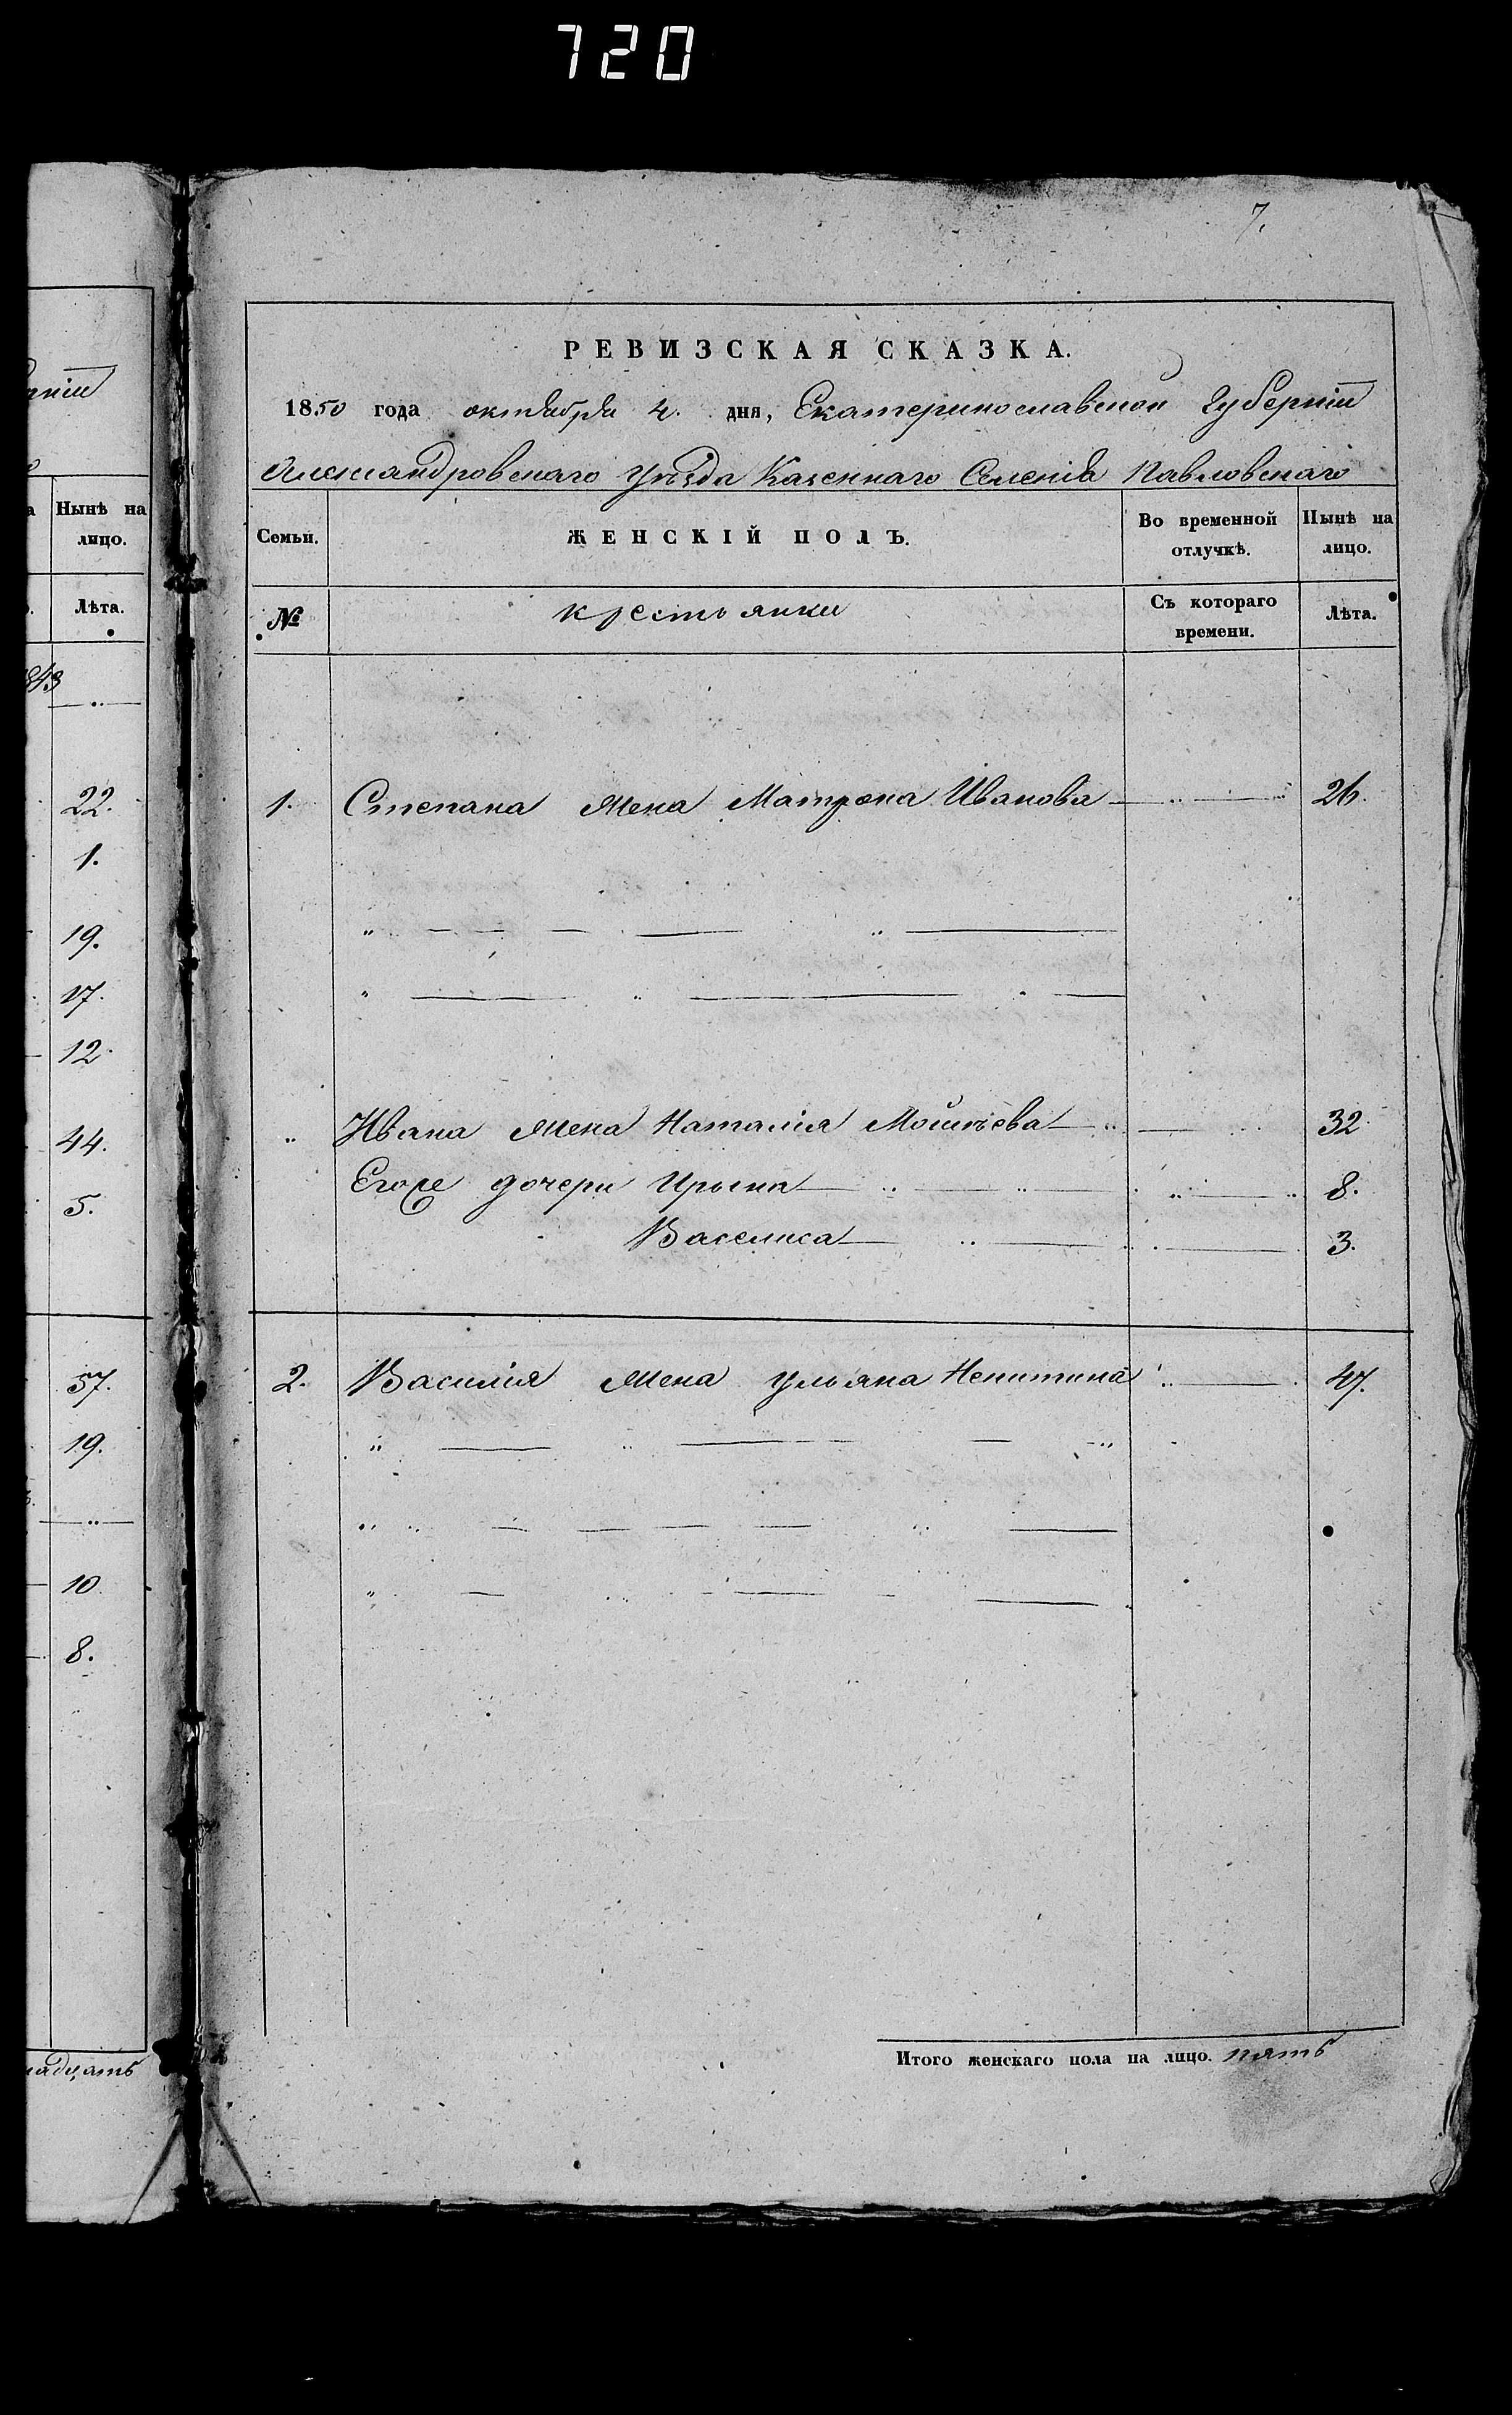 720
7.
РЕВИЗСКАЯ СКАЗКА.
1850 года октября 4. дня, Екатеринославской Губерніи
Александровскаго Уѣзда Казеннаго Селенія Павловскаго
Нынѣ на лицо.
Лѣта.
Семьи. ЖЕНСКІЙ ПОЛЪ. Во временной отлучкѣ. Нынѣ на лицо.
№ крестьянки Съ котораго времени. Лѣта.
843
22. 1. Степана жена Матрона Иванова 26.
1.
19.
17.
12.
44. Ивана жена Наталія Мойсѣева 32.
5. Егоже дочери Ирына 8.
Василиса 3.
57. 2. Василія жена Ульяна Никитина 47.
19.
10.
8.
надцать
Итого женскаго пола на лицо. пять